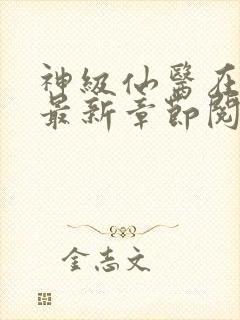 神级仙医在
最新章节阅
金志文